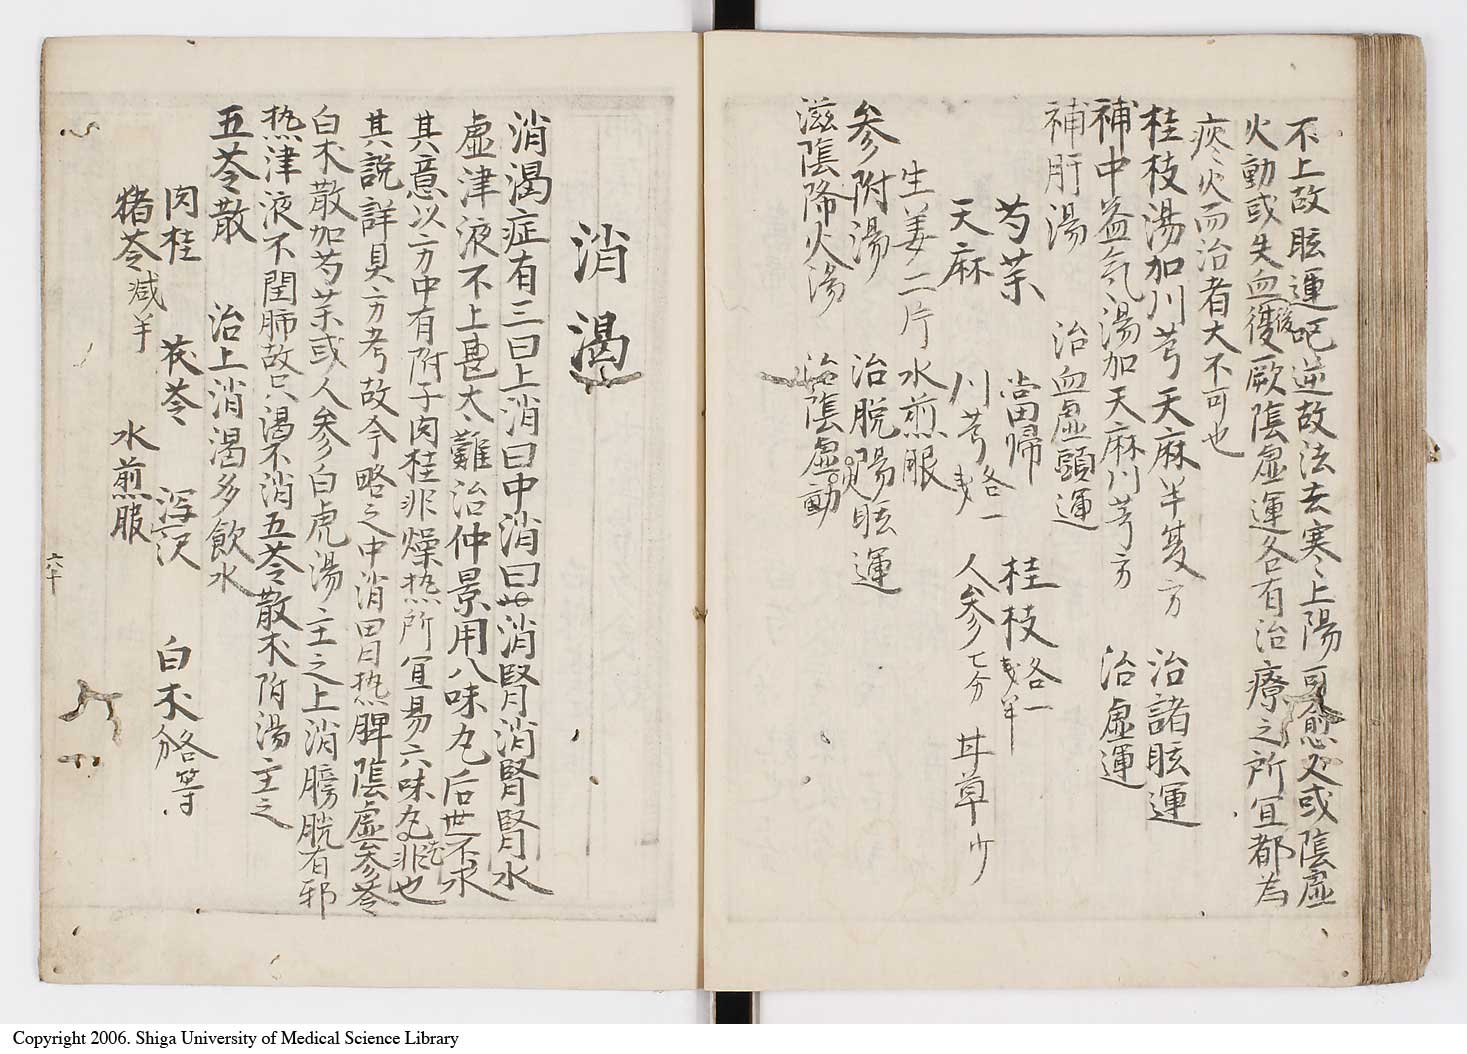 不上故眩運吧逆故法去寒上陽可愈又或陰虛
火動或失血後厥陰虛運各有治療之所宜都為
痰火而治者大不可也
桂枝湯加川芎天麻半夏方 治諸眩運
補中益気湯加天麻川芎方 治虛運
補肝湯 治血虛頭運
芍薬 當帰 桂枝各一戔半
天麻 川芎各一戔 人參七分 甘草少
生姜二片 水煎服
參附湯 治脱陽眩運
滋陰降火湯 治陰虛火動
消渇
消渇症有三曰上消曰中消曰消腎消腎腎水
虛津液不上甚太難治仲景用八味丸后世不求
其意以一方中有附子肉桂非燥热所宜易六味丸非也
其説詳具方考故今略之中消胃热脾陰虛參苓
白朮散加芍薬或人參白虎湯主之上消膀胱有邪
热津液不潤肺故只渇不消五苓散朮附湯主之
五苓散 治上消渇多飲水
肉桂 茯苓 澤瀉 白朮各等分
猪苓減半 水煎服
六十
Copyright 2006. Shiga University of Medical Science Library